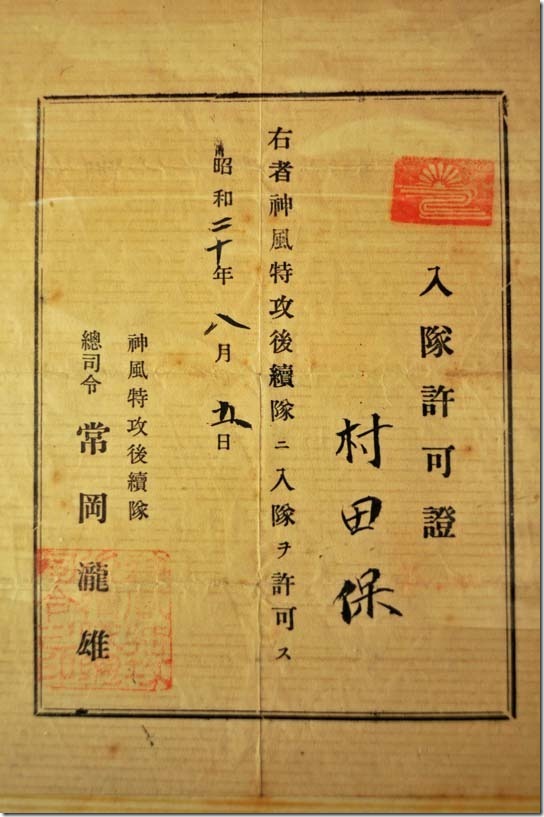 入隊許可證
村田保
右者神風特攻後續隊ニ入隊ヲ許可ス
昭和二十年八月五日
神風特攻後續隊
總司令 常岡瀧雄